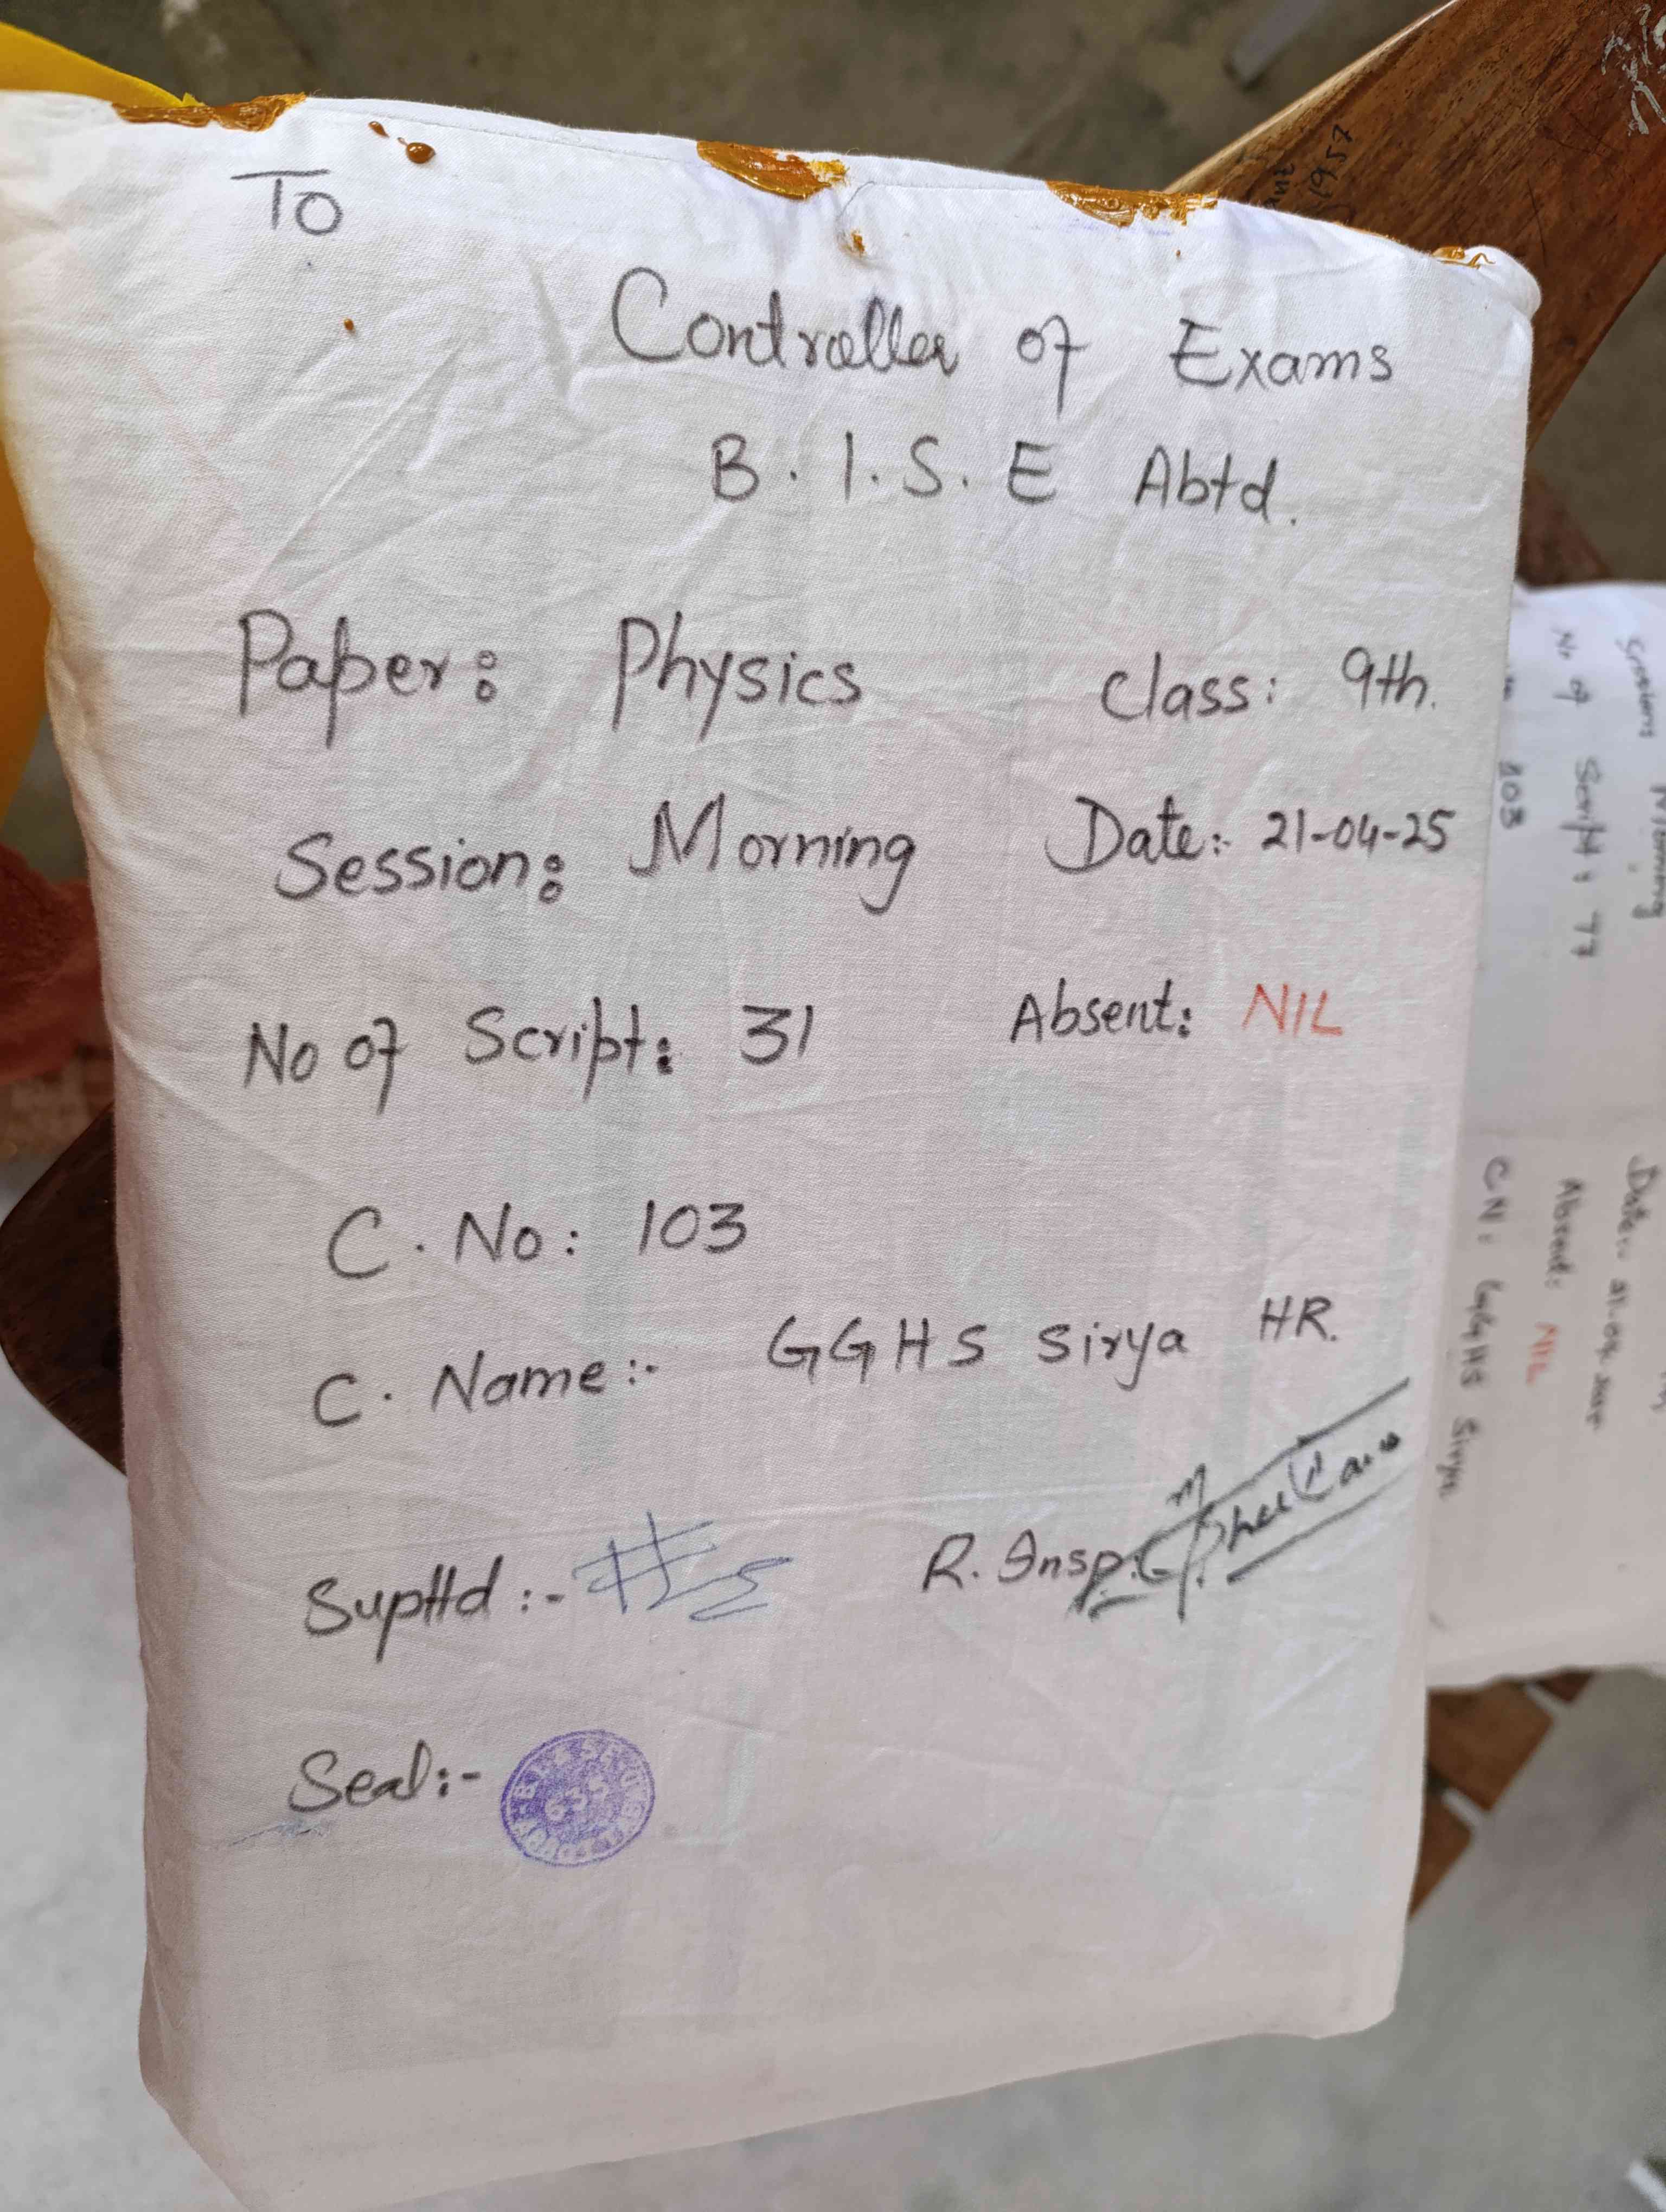 To
Controller of Exams
B.I.S.E Abtd.
Paper: Physics Class: 9th.
Session: Morning Date:- 21-04-25
No of Script: 31 Absent: NIL
C. No: 103
C. Name:- GGHS Sirya HR.
Suptd :- R. Insp:
Seal:-
Morning
No of Script: 77 Absent: NIL
103 CN: GGHS Sirya
Date: